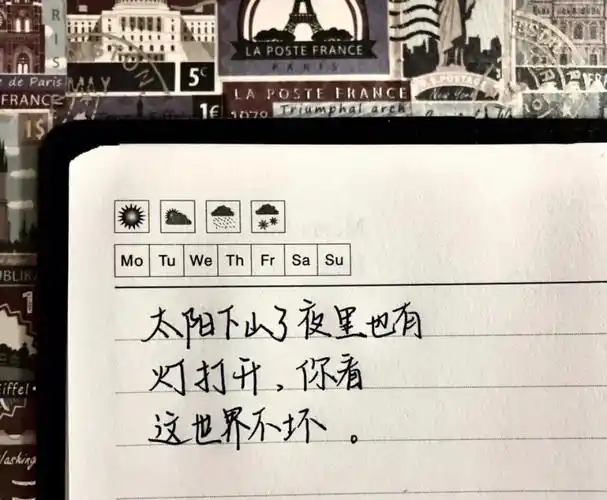 5¢
LA POSTE FRANCE
PARIS
U.S. POSTAGE
New York
de Paris
FRANCE
MAY
1€
LA POSTE FRANCE
Triumphal arch
1$
Mo Tu We Th Fr Sa Su
太阳下山了夜里也有
灯打开，你看
这世界不坏。
Eiffel